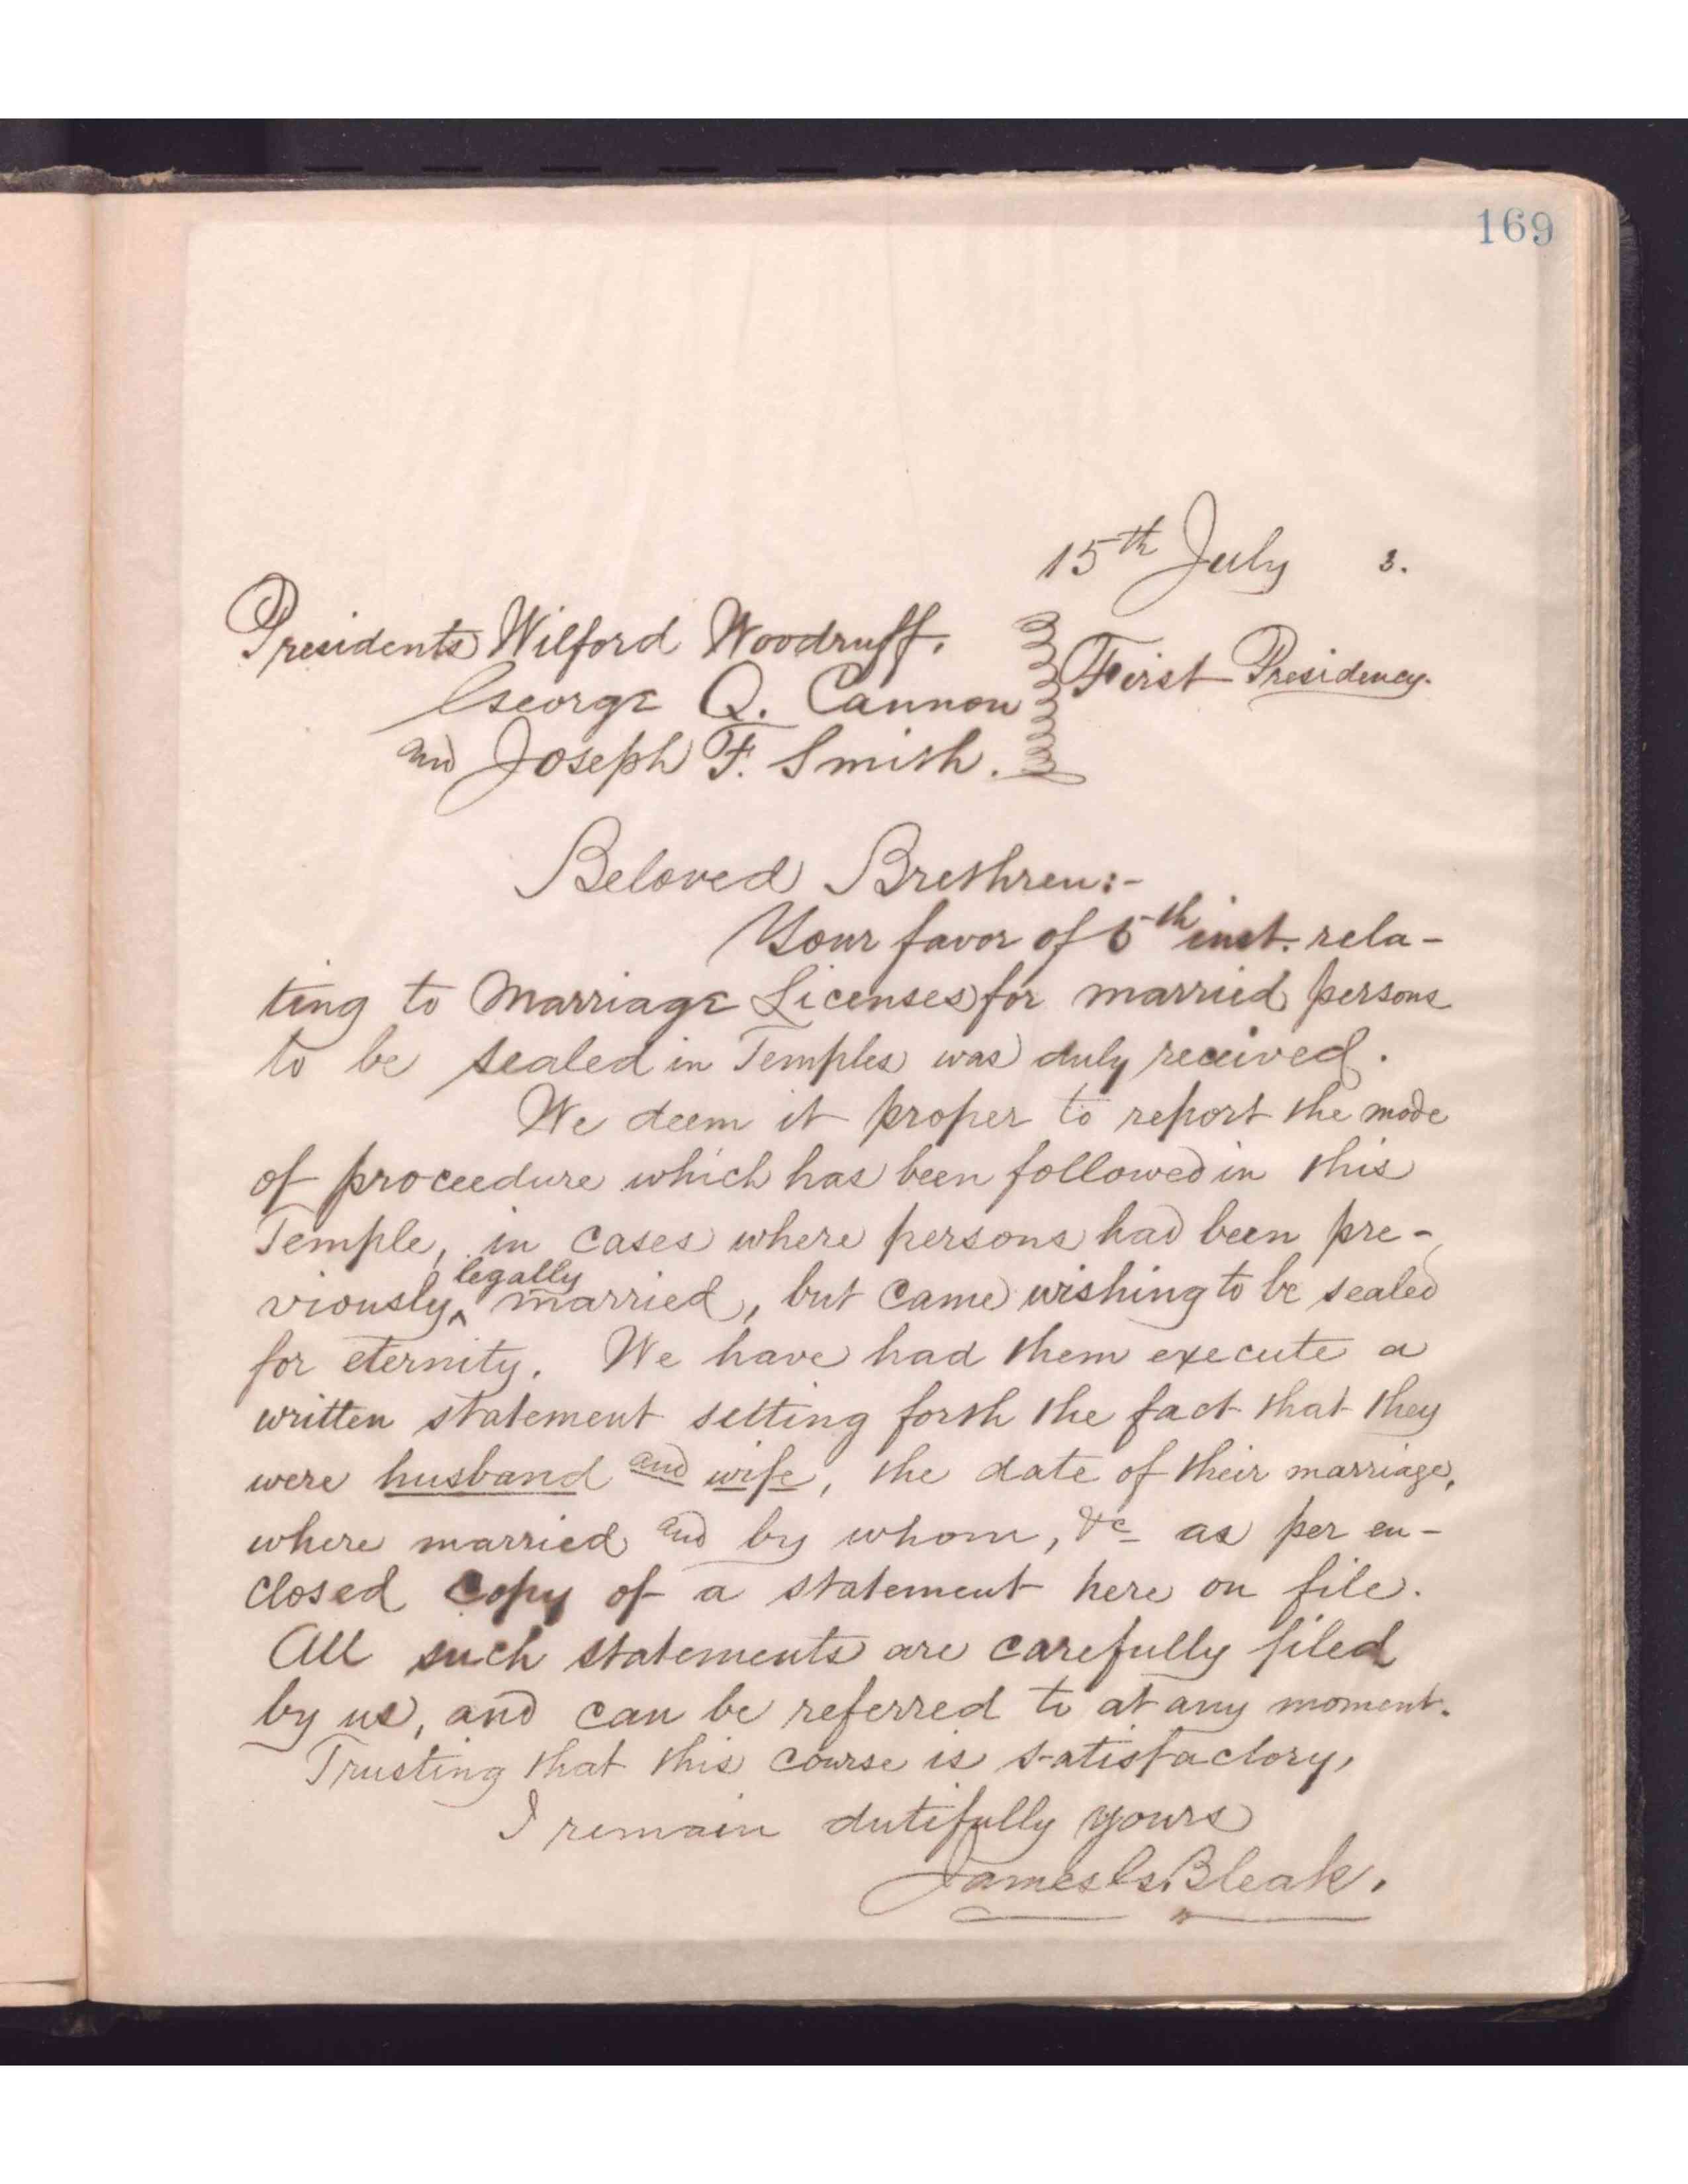 169
15th July 3.
Presidents Wilford Woodruff,
George Q. Cannon
First Presidency.
and Joseph F. Smith.
Beloved Brethren:-
Your favor of 5th inst. rela-
ting to Marriage Licenses for married persons
to be sealed in Temples was duly received.
We deem it proper to report the mode
of proceedure which has been followed in this
Temple, in cases where persons had been pre-
viously ^legally married, but came wishing to be sealed
for eternity. We have had them execute a
written statement setting forth the fact that they
were husband and wife, the date of their marriage,
where married and by whom, &c as per en-
closed copy of a statement here on file.
All such statements are carefully filed
by us, and can be referred to at any moment.
Trusting that this course is satisfactory,
I remain dutifully yours
James G. Bleak.